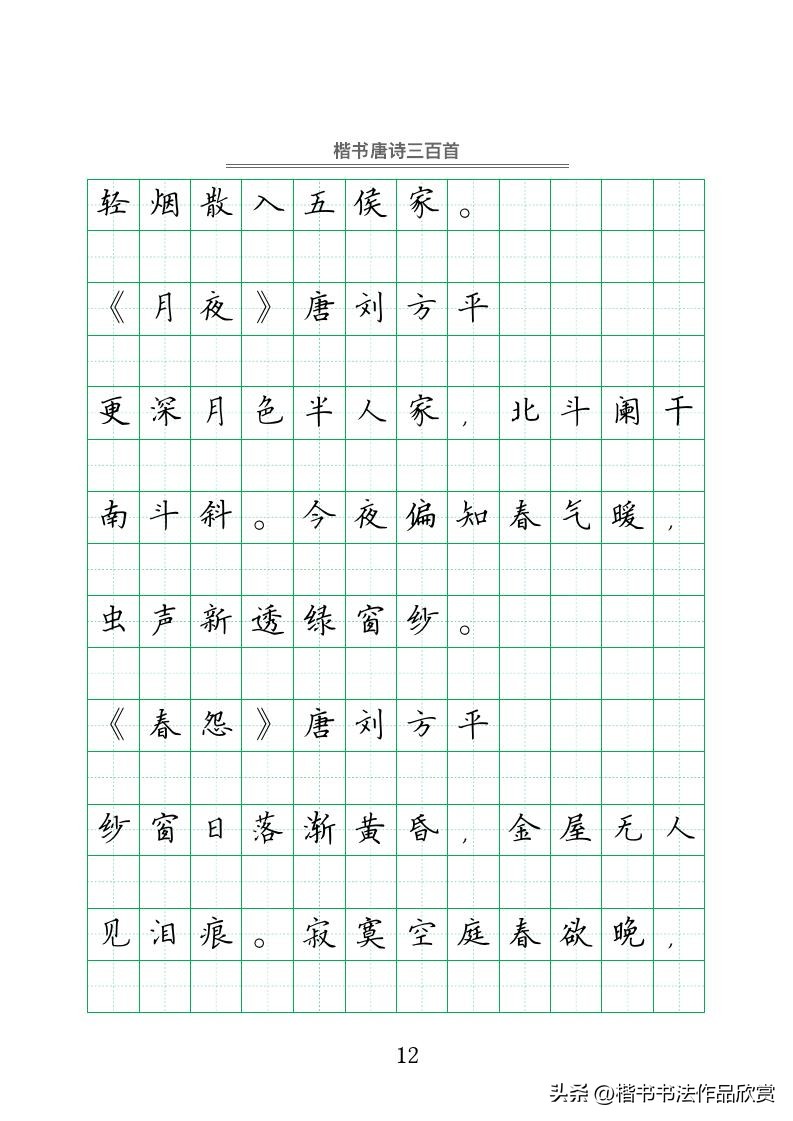 楷书唐诗三百首
轻烟散入五侯家。
《月夜》唐刘方平
更深月色半人家，北斗阑干
南斗斜。今夜偏知春气暖，
虫声新透绿窗纱。
《春怨》唐刘方平
纱窗日落渐黄昏，金屋无人
见泪痕。寂寞空庭春欲晚，
12
头条 @楷书书法作品欣赏